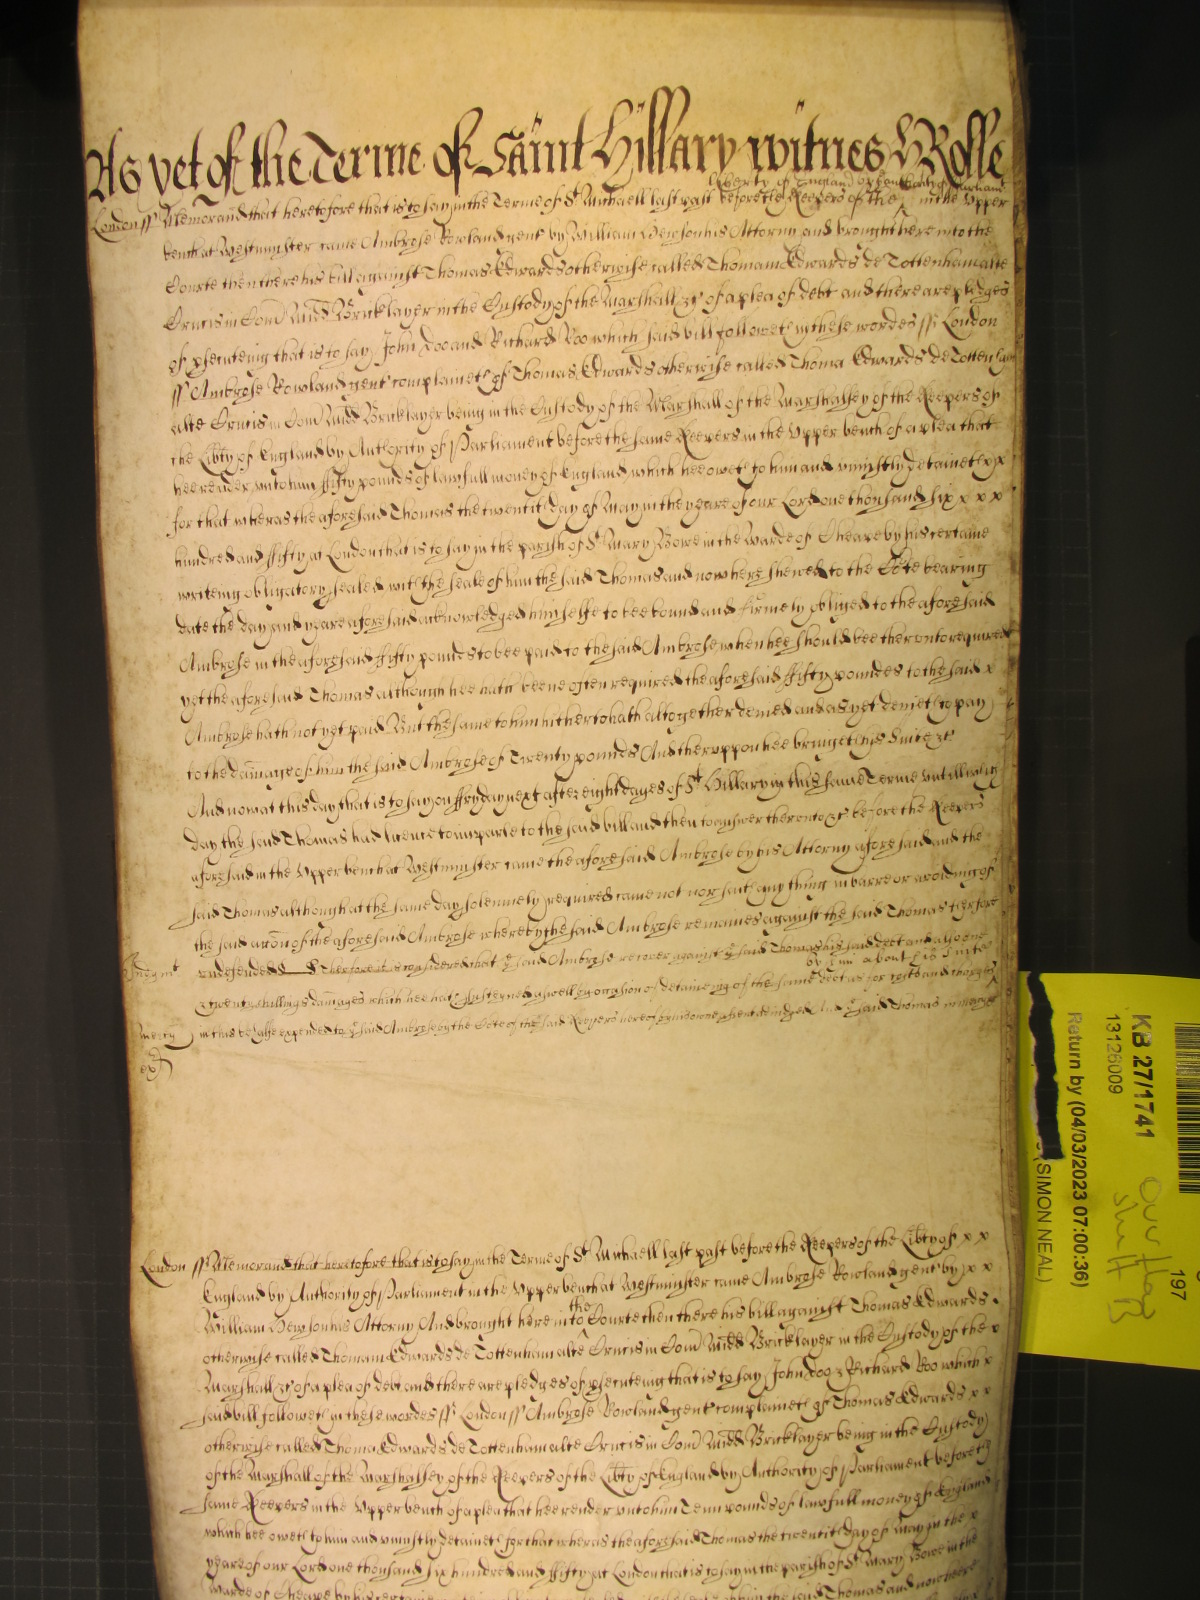 As yet of the Terme of Saint Hillary witnes H Rolle
liberty of England by Authority of Parliamt
London ss Memorand that heretofore that is to say in the Terme of St Michaell last past before the Keepers of the in the Upper
bench at Westminster came Ambrose Rowland gent by William Hewson his Attorny and brought here into the
Courte then there his bill against Thomas Edwards otherwise called Thomam Edwards de Tottenham alte
Crucis in Com Midd Bricklayer in the Custody of the Marshall &c of a plea of debt and there are pledges
of psecuteing that is to say John Doo and Richard Roo which said bill followeth in these wordes ss London
ss Ambrose Rowland gent complaineth of Thomas Edwards otherwise called Thoma Edwards de Tottenham
alte Crucis in Com Midd Bricklayer being in the Custody of the Marshall of the Marshalsey of the Keepers of
the Libty of England by Authority of Parliament before the same Keepers in the Upper bench of a plea that
hee render unto him ffifty pounds of lawfull money of England which hee oweth to him and uniustly detaineth x x
for that wheras the aforesaid Thomas the twentith day of May in the yeare of our Lord one thousand six x x x
hundred and ffifty at London that is to say in the parish of St Mary Bowe in the Warde of Cheape by his certaine
writeing obligatory sealed with the seale of him the said Thomas and now here shewed to the Cote bearing
date the day and yeare aforesaid acknowledged himselfe to bee bound and firmely obliged to the aforesaid
Ambrose in the aforesaid ffifty pounds to bee paid to the said Ambrose when hee should bee therunto required
yet the aforesaid Thomas although hee hath beene often required the aforesaid ffifty poundes to the said x
Ambrose hath not yet paid But the same to him hitherto hath altogether denied and as yet denieth to pay
to the damage of him the said Ambrose of Twenty pounds And theruppon hee bringeth his Suite &c
And now at this day that is to say on ffryday next after eight dayes of St Hillary in this same Terme untill which
day the said Thomas had licence to imparle to the said bill and then to answer therunto &c before the Keepers
aforesaid in the Upper bench at Westminster came the aforesaid Ambrose by his Attorny aforesaid and the
said Thomas although at the same day solemnely required came not nor saith any thing in barre or avoiding of
the said accon of the aforesaid Ambrose wherby the said Ambrose remaines against the said Thomas therfore
undefended Therfore it is considered that the said Ambrose recover against the said Thomas his said debt and alsoe
by him about his Suite
twenty shillings damages which hee hath susteined aswell by occasion of detaineing of the same debt as for costs and charges
mercy in this behalfe expended to the said Ambrose by the Cote of the said Keepers here
And the said Thomas in mercy
London ss Memorand that heretofore that is to say in the Terme of St Michaell last past before the Keepers of the Libty of x x
England by Authority of Parliament in the Upper bench at Westminster came Ambrose Rowland gent by x x
the
William Hewson his Attorny And brought here into Courte then there his bill against Thomas Edwards
otherwise called Thomam Edwards de Tottenham alte Crucis in Com Midd Bricklayer in the Custody of the x
Marshall &c of a plea of debt and there are pledges of psecuteing that is to say John Doo & Richard Roo which x
said bill followeth in these wordes ss London ss Ambrose Rowland gent complaineth of Thomas Edwards x x
otherwise called Thoma Edwards de Tottenham alte Crucis in Com Midd Bricklayer being in the Custody
of the Marshall of the Marshalsey of the Keepers of the Libty of England by Authority of Parliament before the
same Keepers in the Upper bench of a plea that hee render unto him Tenn pounds of lawfull money of England
which hee oweth to him and uniustly detaineth for that wheras the aforesaid Thomas the twentith day of May in the x
yeare of our Lord one thousand six hundred and ffifty at London that is to say in the parish of St Mary Bowe in the
warde of Cheape by his certaine said Thomas and now here
197
KB 27/1741
13126009
Return by (04/03/2023 07:00:36)
(SIMON NEAL)